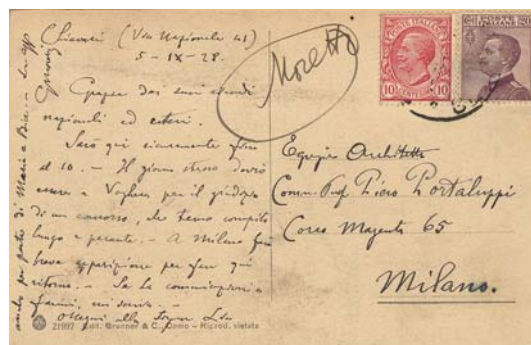 Chiavari (Via Nazionale 41)
5-IX-28.
Moretti
Grazie dei suoi ricordi
nazionali ed esteri.
Sarò qui sicuramente fino
al 10. - Il giorno stesso dovrò
essere a Voghera per il giudizio
di un concorso, che temo compito
lungo e pesante. - A Milano farò
breve apparizione per far qui
ritorno. - Se ha comunicazioni a
farmi, mi scriva. -
Ossequi alla Signora Lia
anche per parte di Maria e Bice.
21997 Edit. Brunner & C., Como - Riprod. vietata
POSTE ITALIANE
10 CENTESIMI 10
Egregio Architetto
Comm. Prof. Piero Portaluppi
Corso Magenta 65
Milano.